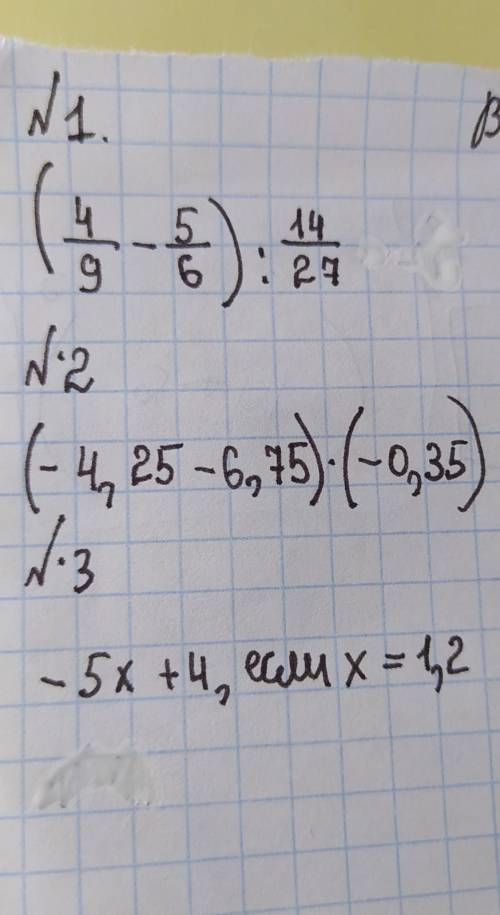 №1. В
(4/9 - 5/6) : 14/27
№2
(-4,25 - 6,75)·(-0,35)
№3
-5x + 4, если x = 1,2